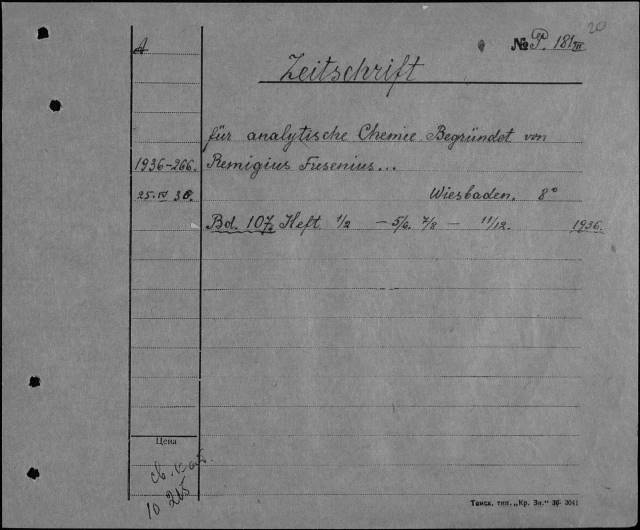 20
A
№ P. 181
Zeitschrift
für analytische Chemie Begründet von
1936-266. Remigius Fresenius...
25. IV 36. Wiesbaden. 8°
Bd. 107, Heft 1/2 - 5/6. 7/8 - 11/12. 1936.
Цена
10 215
Томск. тип. „Кр. Зн.“ 36 3041